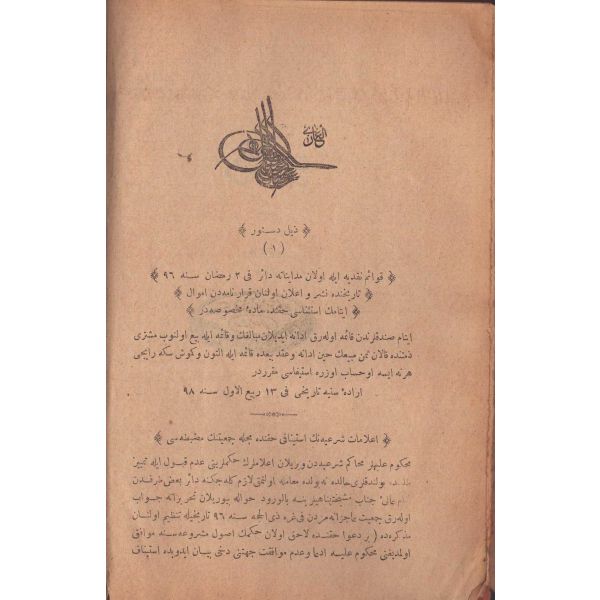 الغازى
﴿ ذیل دستور ﴾
( ١ )
﴿ قوائم نقدیه ایله اولان مدایناته دائر فی ٣ رمضان سنه ٩٦ ﴾
﴿ تاریخنده نشر و اعلان اولنان قرارنامه‌دن اموال ﴾
﴿ ایتامك استثناسی حقنده ماده‌ٔ مخصوصه‌در ﴾
ایتام صندقلرندن قائمه اوله‌رق ادانه ایدیلان مبالغك وقائمه ایله بیع اولنوب مشتری
ذمتنده قالان ثمن مبیعك حین ادانه وعقد بیعده قائمه ایله التون وکوش سکه رایجی
هرنه ایسه اوحساب اوزره استیفاسی مقرردر
اراده‌ٔ سنیه تاریخی فی ١٣ ربیع الاول سنه ٩٨
﴿ اعلامات شرعیه‌نك استینافی حقنده مجله جمعیتنك مضبطه‌سی ﴾
محکوم علیهلر محاکم شرعیه‌دن ویریلان اعلاملرك حکملرینی عدم قبول ایله تمییز
بولندقلری حالده نه‌یولده معامله اولنمق لازم کله‌جکنه دائر بعض طرفدن
جناب مشیختپناهیلرینه بالورود حواله بیوریلان تحریراته جواب
اوله‌رق جمعیت عاجزانه‌مزدن فی غره ذی الحجه سنه ٩٦ تاریخیله تنظیم اولنان
مذکره‌ده ( بر دعوا حقنده لاحق اولان حکمك اصول مشروعه‌سنه موافق
اولمدیغنی محکوم علیه ادعا وعدم موافقت جهتنی دخی بیان ایدوبده استیناف